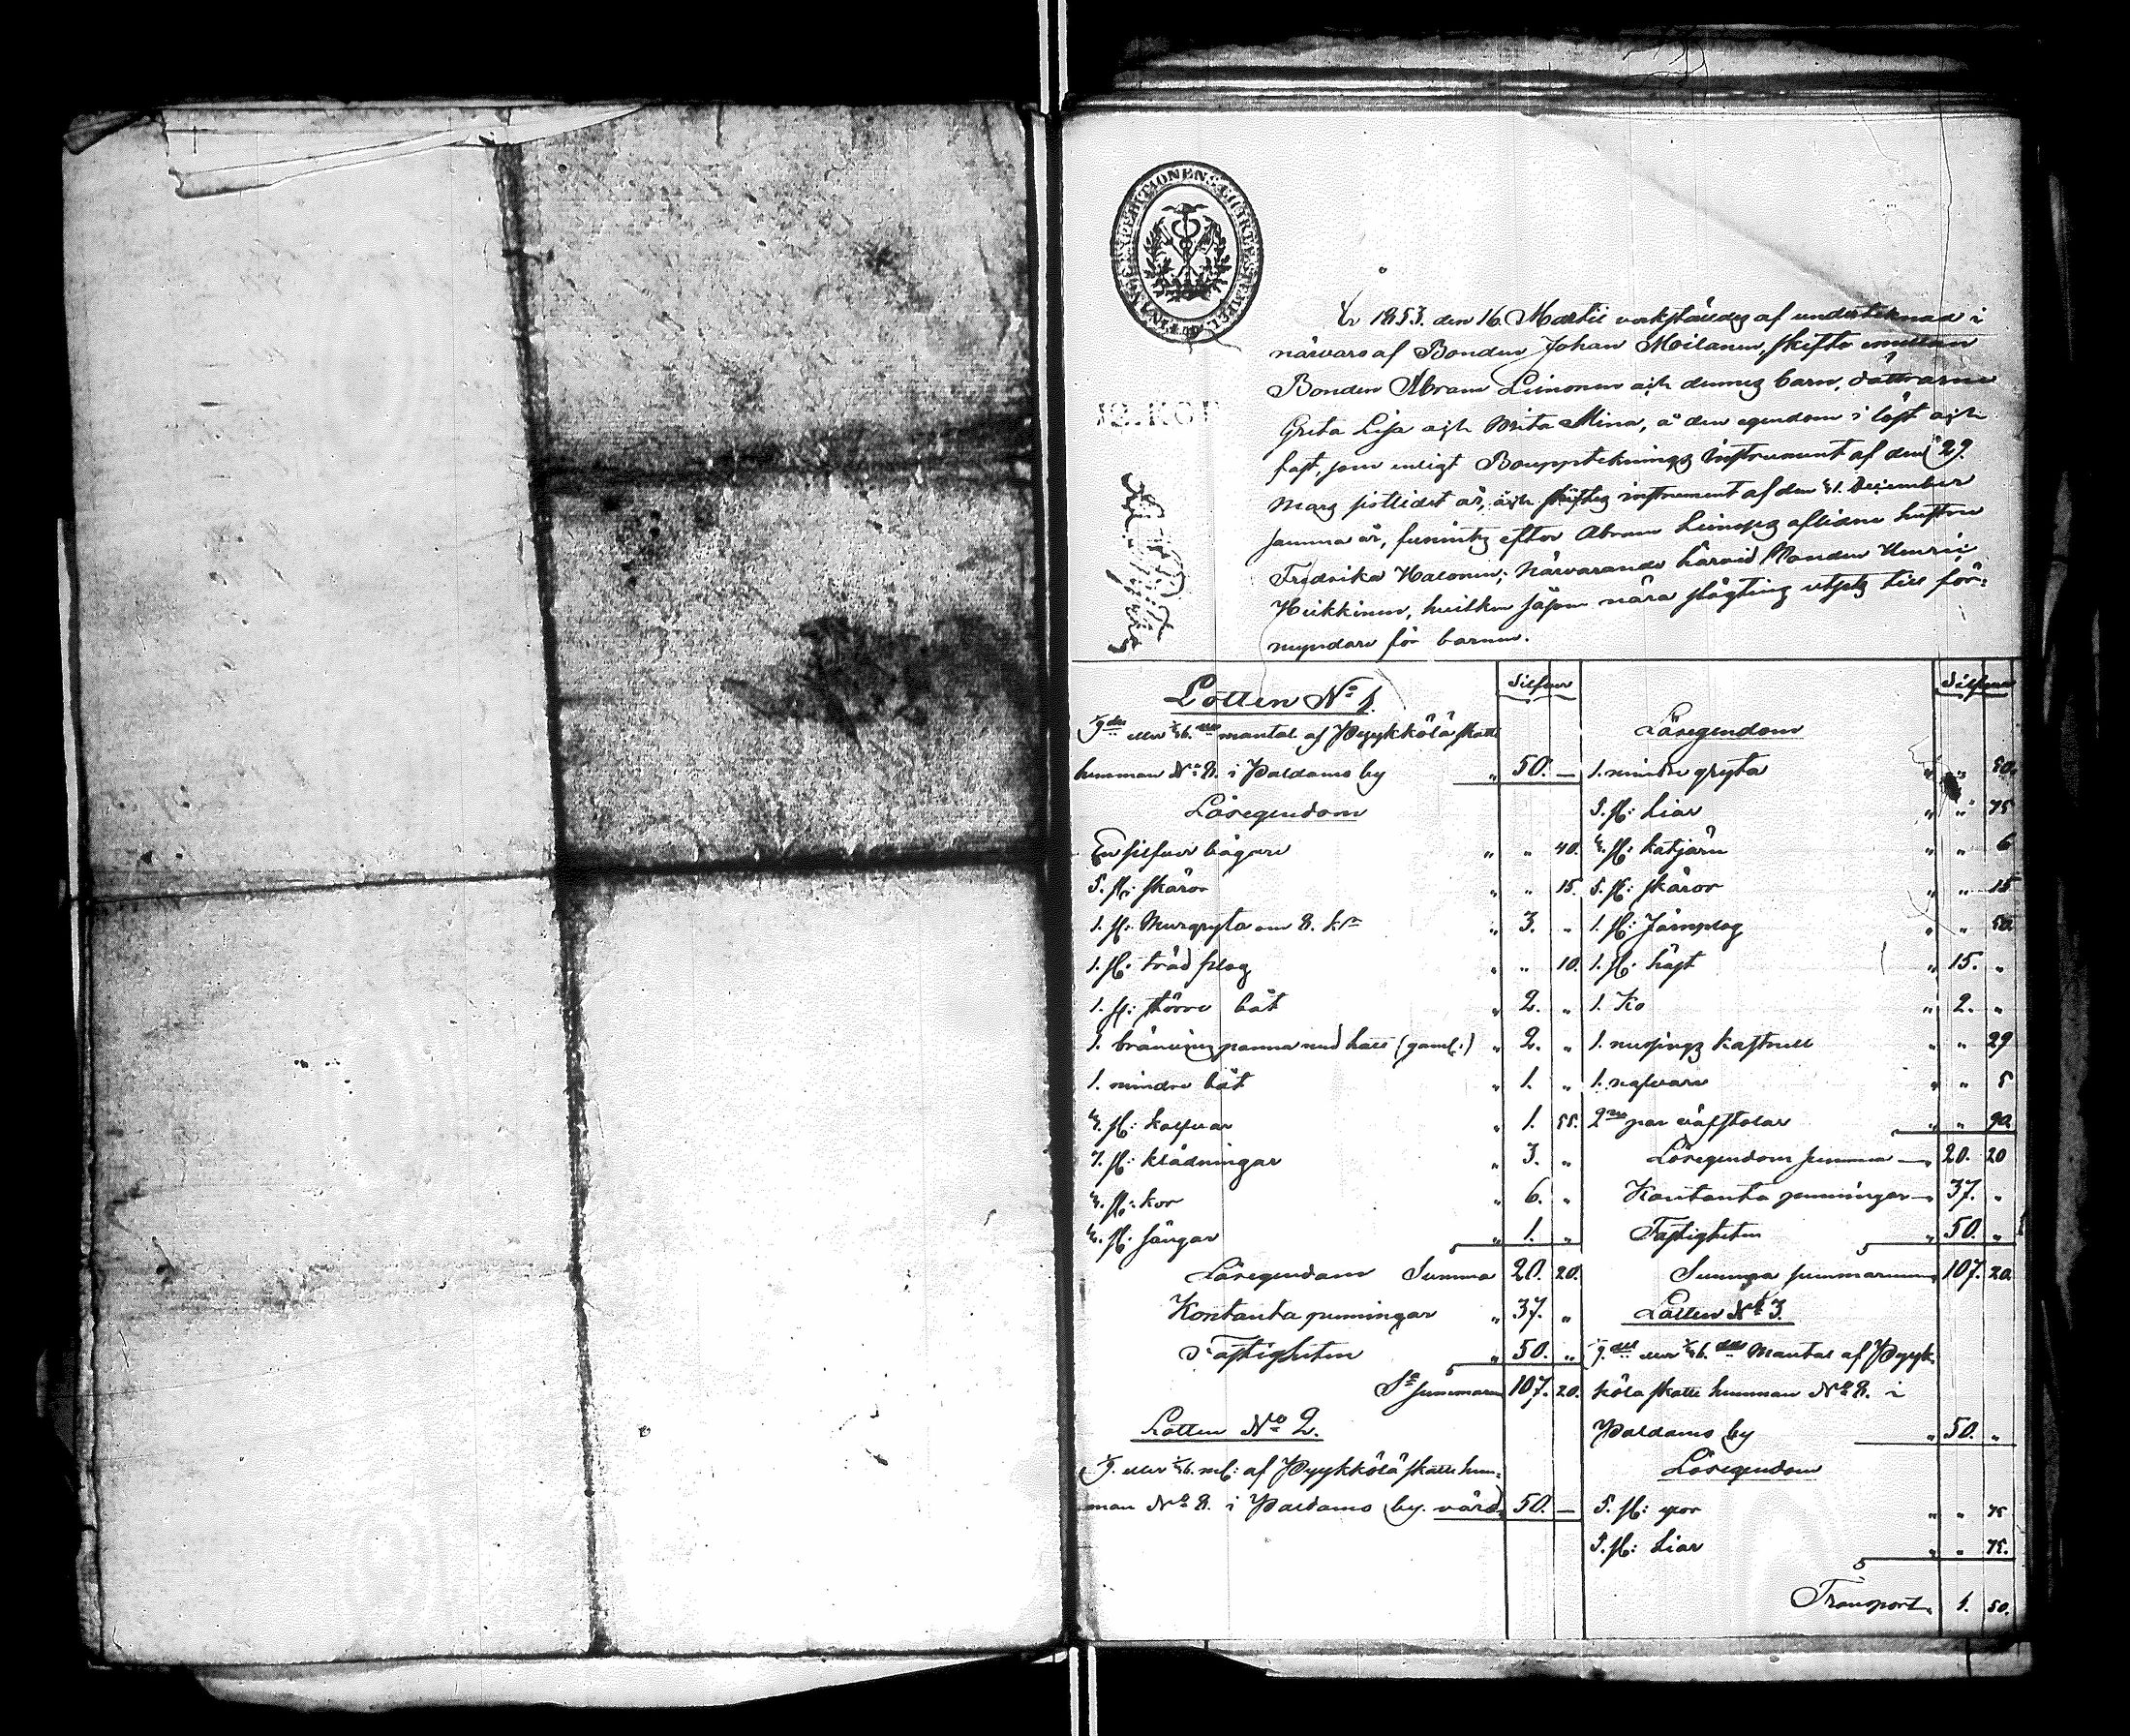 År 1853. den 16. Martii verkställdes af undertecknad i
närvaro af Bonden Johan Moilanen, skifte emellan
Bonden Abram Leinonen och dennes barn, döttrarne
Greta Lisa och Brita Mina, å den egendom i löst och
fast, som enligt Bouppteknings instrument af den 29.
Mars sistledet år, och skiftes instrument af den 31. December
samma år, funnits efter Abram Leinos aflidne hustru
Fredrika Halonen; Närvarande härvid Bonden Henric
Heikkinen, hvilken såsom nära slägting utsets till för-
myndare för barnen.
12. KOP
Lotten No 1.
Silfver
1/9 del eller mantal af Pyykkölä skatte
hemman No 8. i Paldamo by " 50. —
Lösegendom
En silfver bägare " " 40.
5. st: skäror " " 15.
1. st: Murgryta om 8. k:r " 3. "
1. st: träd plog " " 10.
1. st: större båt " 2. "
1. bränvins panna med hatt (gaml.) " 2. "
1. mindre båt " 1. "
4. st: kalfvar " 1. 55.
7. st: klädningar " 3. "
4. st: kor " 6. "
4. st: sängar " 1. "
Lösegendom Summa 20. 20.
Kontanta penningar " 37. "
Fastigheten " 50. "
S:a summarum 107. 20.
Lotten No 2.
1/9. eller ml: af Pyykkölä skatte hem-
man No 8. i Paldamo by. värd 50. —
Silfver
Lösegendom
1. mindre gryta " " 50.
5. st: Liar " " 75
4. st: katjärn " " 6
5. st: skäror " " 15
1. st: Järnplog " " 50.
1. st: häst " 15. "
1. Ko " 2. "
1. messings kastrull " " 29
1. nafvare " " 5
2:ne par väfstolar " " 90.
Lösegendom summa — 20. 20
Kontanta penningar — 37. "
Fastigheten " 50. "
Summa summarum 107. 20.
Lotten No 3.
1/9. del eller Mantal af Pyyk-
kölä skatte hemman No 8. i
Paldamo by " 50. "
Lösegendom
5. st: yxor " " 75
5. st: Liar " " 75.
Transport " 1. 50.